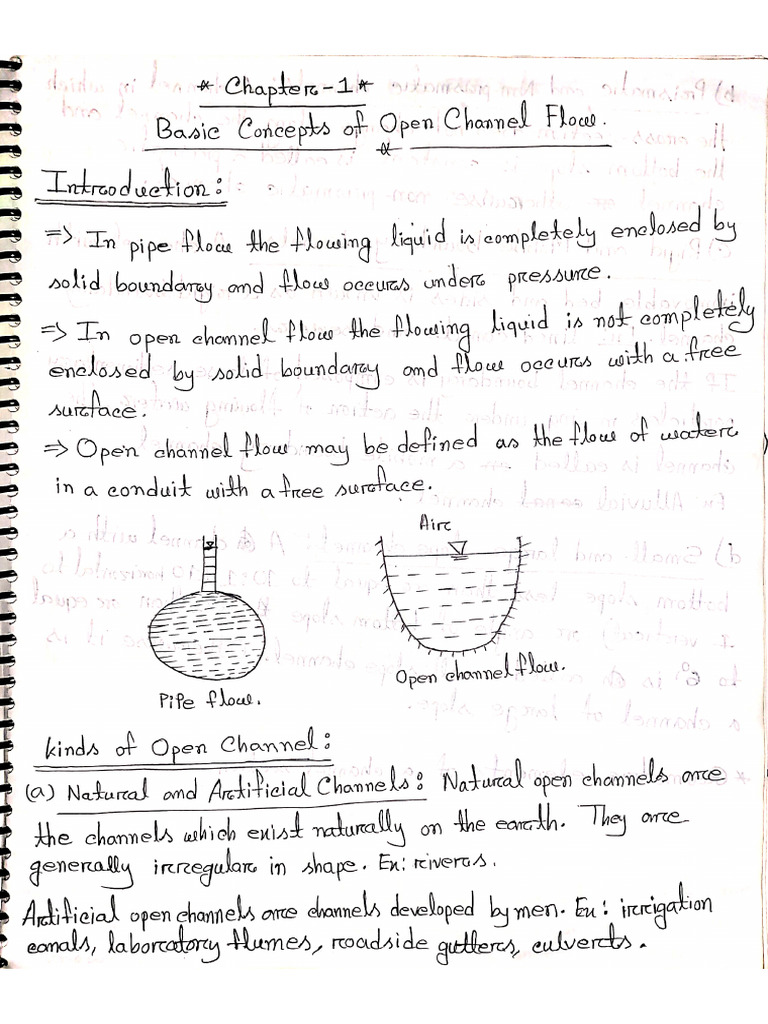 * Chapter-1 *
Basic Concepts of Open Channel Flow.
Introduction:
=> In pipe flow the flowing liquid is completely enclosed by
solid boundary and flow occurs under pressure.
=> In open channel flow the flowing liquid is not completely
enclosed by solid boundary and flow occurs with a free
surface.
=> Open channel flow may be defined as the flow of water
in a conduit with a free surface.
Air
Pipe flow.
Open channel flow.
Kinds of Open Channel:
(a) Natural and Artificial Channels: Natural open channels are
the channels which exist naturally on the earth. They are
generally irregular in shape. Ex: rivers.
Artificial open channels are channels developed by men. Ex: irrigation
canals, laboratory flumes, roadside gutters, culverts.